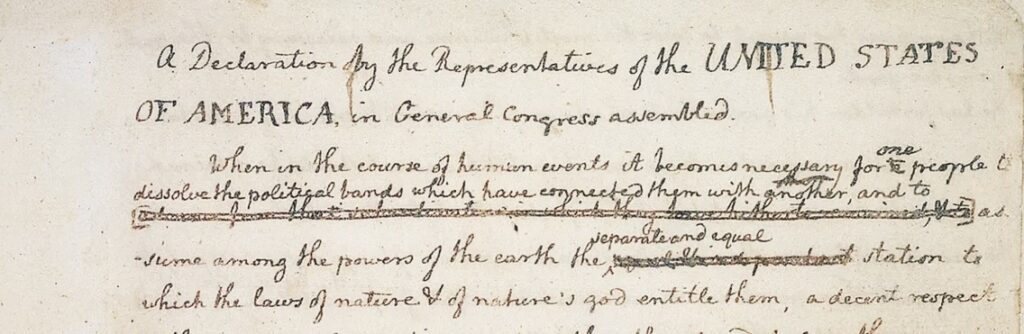 A Declaration by the Representatives of the UNITED STATES
OF AMERICA, in General Congress assembled.
one
When in the course of human events it becomes necessary for people t
dissolve the political bands which have connected them with another, and to
in which they have hitherto remained, & to as
separate and equal
-sume among the powers of the earth the station to
which the laws of nature & of nature's god entitle them, a decent respect